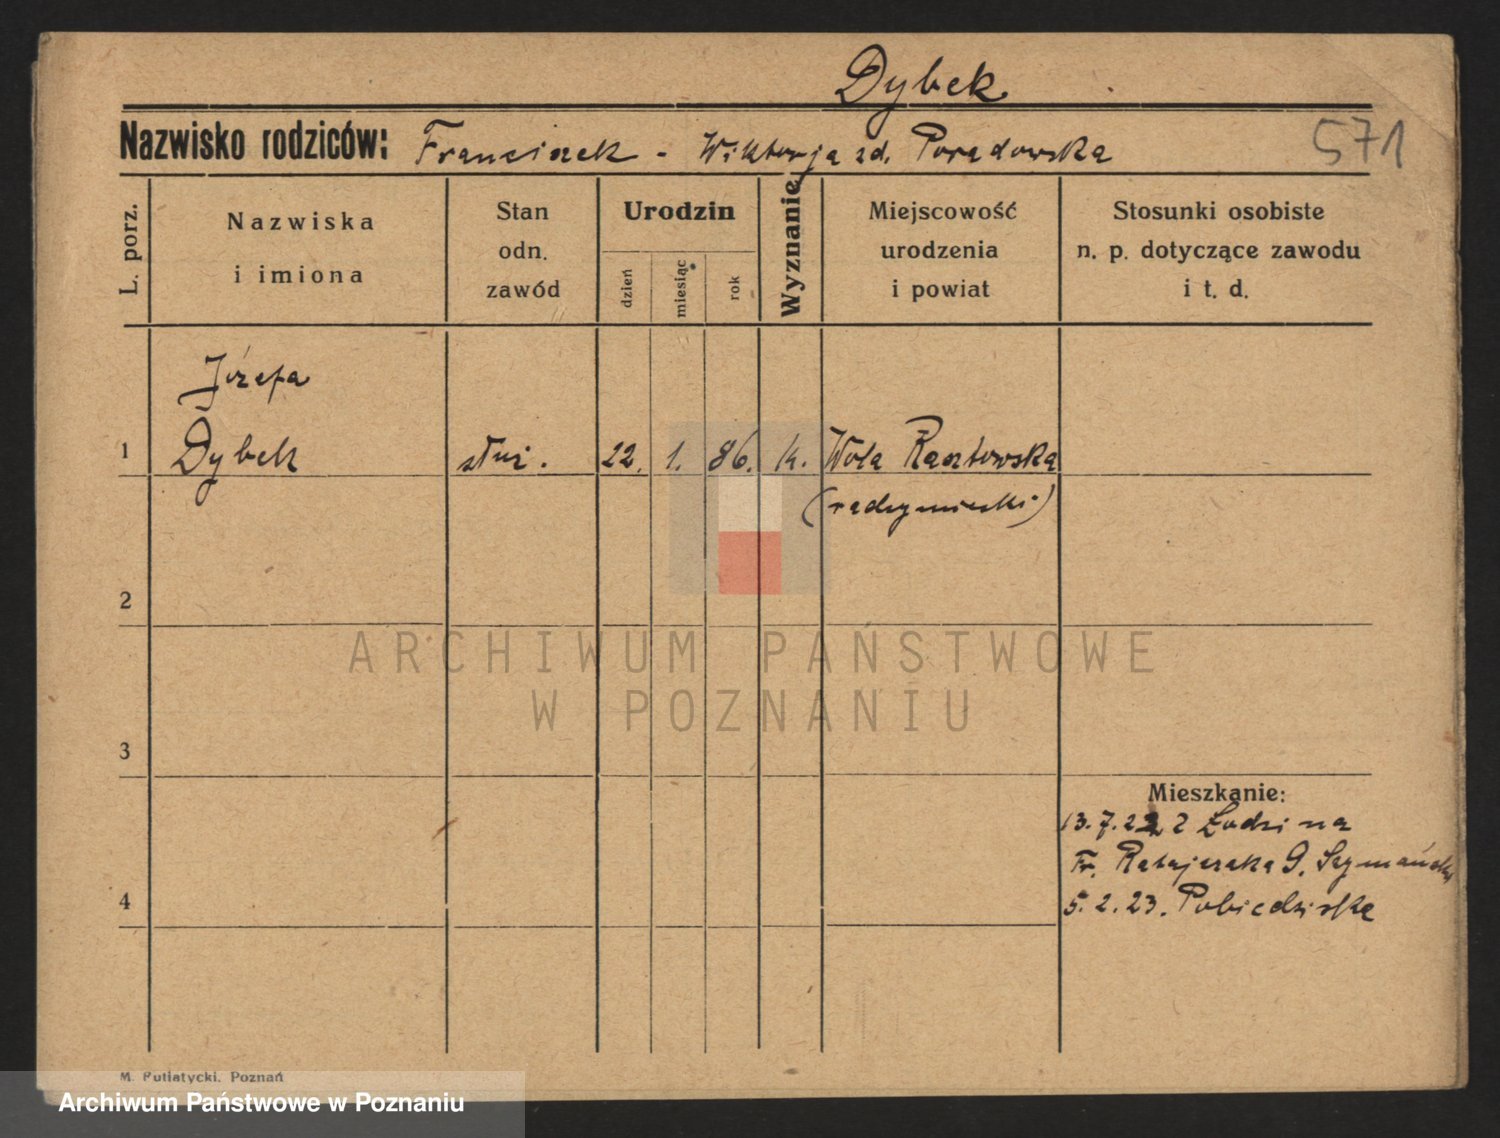 Dybek
Nazwisko rodziców: Franciszek - Wiktorja zd. Poradowska
571
L. porz.
Nazwiska
i imiona
Stan
odn.
zawód
Urodzin
dzień
miesiąc
rok
Wyznanie
Miejscowość
urodzenia
i powiat
Stosunki osobiste
n. p. dotyczące zawodu
i t. d.
Józefa
1 Dybek służ. 22. 1. 86. k. Wola Rasztowska
(radzymiński)
2
ARCHIWUM PAŃSTWOWE
W POZNANIU
3
Mieszkanie:
13.7.22 z Łodzi na
Fr. Ratajczaka 9. Szymański
4
5.2.23. Pobiedziska
M. Putiatycki. Poznań
Archiwum Państwowe w Poznaniu